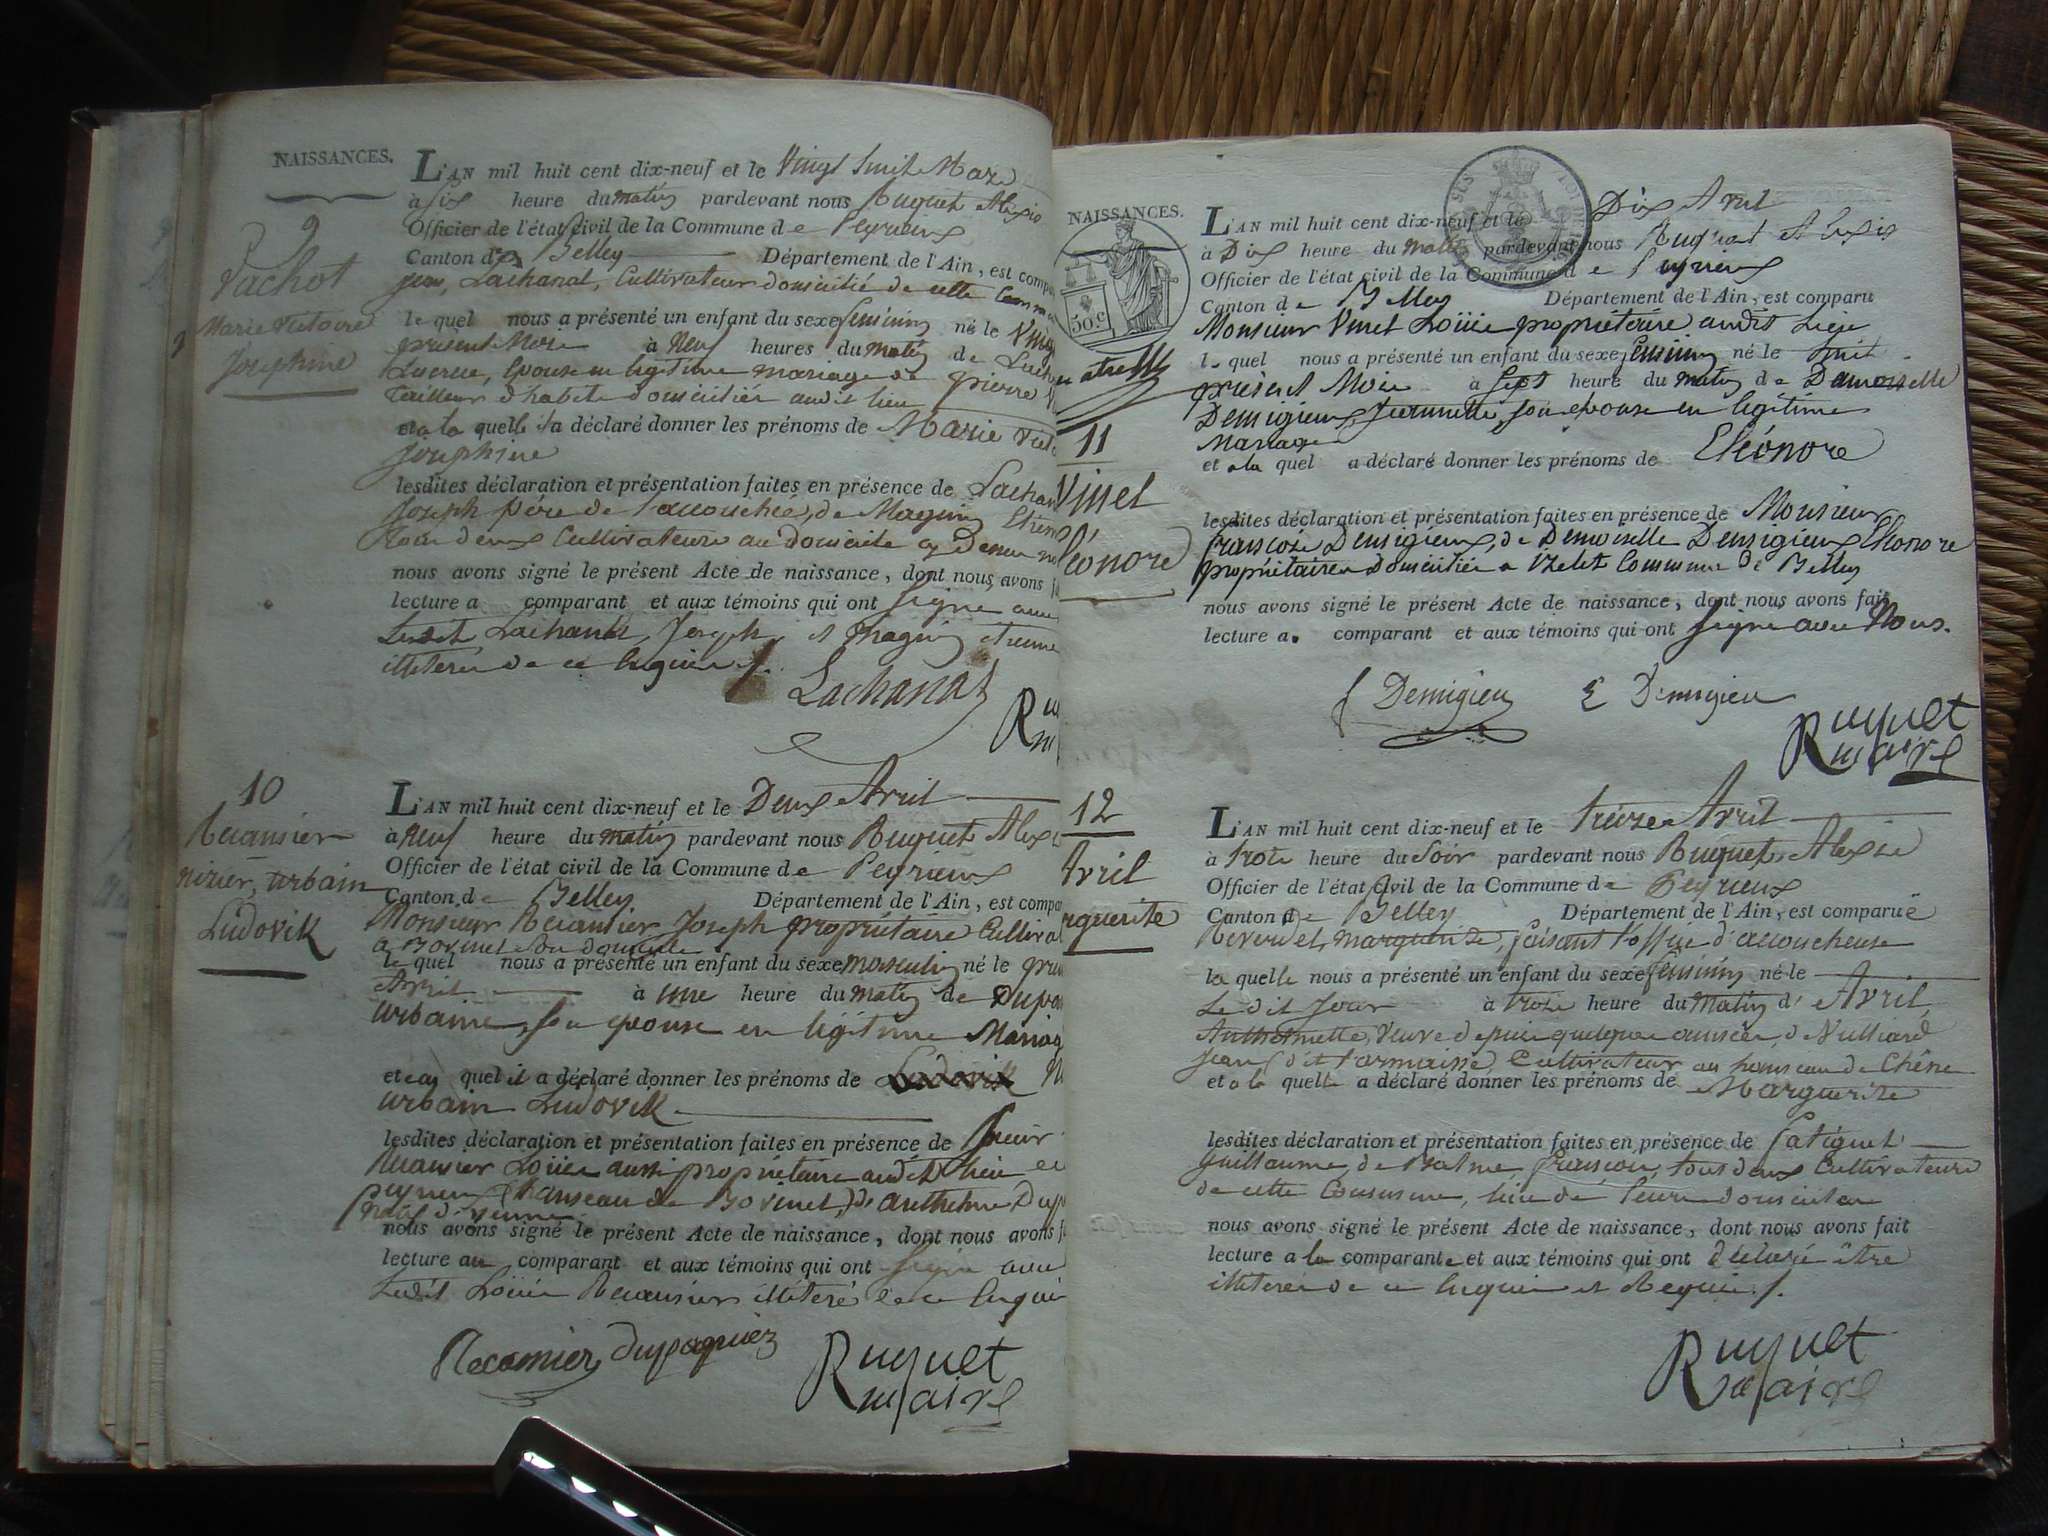 NAISSANCES.
9
Vachot
Marie Victoire
Josephine
L'AN mil huit cent dix-neuf et le Vingt huit Mars
à Six heure du matin pardevant nous Ruquet Alexis
Officier de l'état civil de la Commune de Peyrieux
Canton de Belley Département de l'Ain, est compa
Lachanal, Cultivateur domicilié de cette
le quel nous a présenté un enfant du sexe feminin né le Vingt
présent Mois à Neuf heures du matin de Lach
épouse en légitime mariage de pierre
tailleur d'habits domicilier audit lieu
et a la quelle a déclaré donner les prénoms de Marie Vict
Josephine
lesdites déclaration et présentation faites en présence de Lachan
Joseph père de l'accouchée, de Magnin
tous deux Cultivateurs
nous avons signé le présent Acte de naissance, dont nous avons f
lecture a comparant et aux témoins qui ont signé avec
Ledit Lachanal Joseph et Magnin
illiteré de ce enquis
Lachanal
Ru
m
10
Recamier
nizier, urbain
Ludovik
L'AN mil huit cent dix-neuf et le Deux Avril
à Neuf heure du matin pardevant nous Ruquet Alexi
Officier de l'état civil de la Commune de Peyrieux
Canton de Belley Département de l'Ain, est compa
Monsieur Recamier Joseph propriétaire Cultiva
le quel nous a présenté un enfant du sexe masculin né le
Avril à une heure du matin de Dupa
urbaine, son épouse en légitime Mariag
et au quel il a déclaré donner les prénoms de Ludovik
urbain Ludovik
lesdites déclaration et présentation faites en présence de sieur
Recamier Loüis aussi propriétaire audit lieu
peyrieux (hameau de Bovinel) d'anthelme Dup
nous avons signé le présent Acte de naissance, dont nous avons f
lecture au comparant et aux témoins qui ont signé avec
Ledit Loüis Recamier illiteré de ce enqui
Recamier Dupasquier Ruquet
maire
NAISSANCES.
50.c
11
Vinel
léonore
L'AN mil huit cent dix-neuf et le Dix Avril
à Dix heure du matin pardevant nous Ruquet Alexis
Officier de l'état civil de la Commune de Peyrieux
Canton de Belley Département de l'Ain, est comparu
Monsieur Vinet Loüis propriétaire audit Lieu
le quel nous a présenté un enfant du sexe feminin né le huit
présent Mois à Sept heure du matin de Damoiselle
Demigieux, Jeannette, son épouse en légitime
Mariage
et a la quel a déclaré donner les prénoms de Eléonore
lesdites déclaration et présentation faites en présence de Monsieur
françois Demigieux, de Demoiselle Demigieux Eléonore
propriétaires domiciliés a Commune de Belley
nous avons signé le présent Acte de naissance, dont nous avons fait
lecture a comparant et aux témoins qui ont signé avec Nous.
f Demigieu E Demigieu
Ruquet
maire
12
Avril
rguerite
L'AN mil huit cent dix-neuf et le treize Avril
à trois heure du Soir pardevant nous Ruquet Alexis
Officier de l'état civil de la Commune de Peyrieux
Canton de Belley Département de l'Ain, est comparuë
Reverdet, marguerite, faisant l'office d'accoucheuse
la quelle nous a présenté un enfant du sexe feminin né le
Ledit Jour à trois heure du Matin d' Avril
Anthelmette, Veuve depuis quelque années, de Vulliard
jean (dit Cultivateur au hameau de Chêne
et a la quelle a déclaré donner les prénoms de Marguerite
lesdites déclaration et présentation faites en présence de
guillaume, de Balme françois, tous deux Cultivateurs
de cette Commune, lieu de leurs domiciles
nous avons signé le présent Acte de naissance, dont nous avons fait
lecture a la comparante et aux témoins qui ont déclaré être
illiterés de ce enquis et Requis
Ruquet
maire